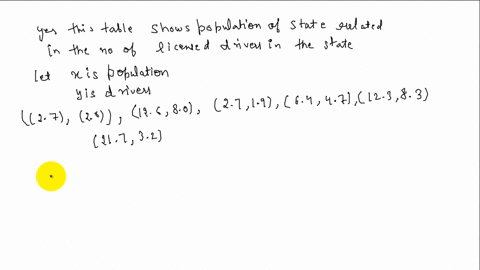 yes this table shows population of state related
in the no of licensed drivers in the state
let x is population
y is drivers
((2.7), (2.8)), (12.6, 8.0), (2.7, 1.9), (6.4, 4.7), (12.3, 8.3)
(21.7, 3.2)